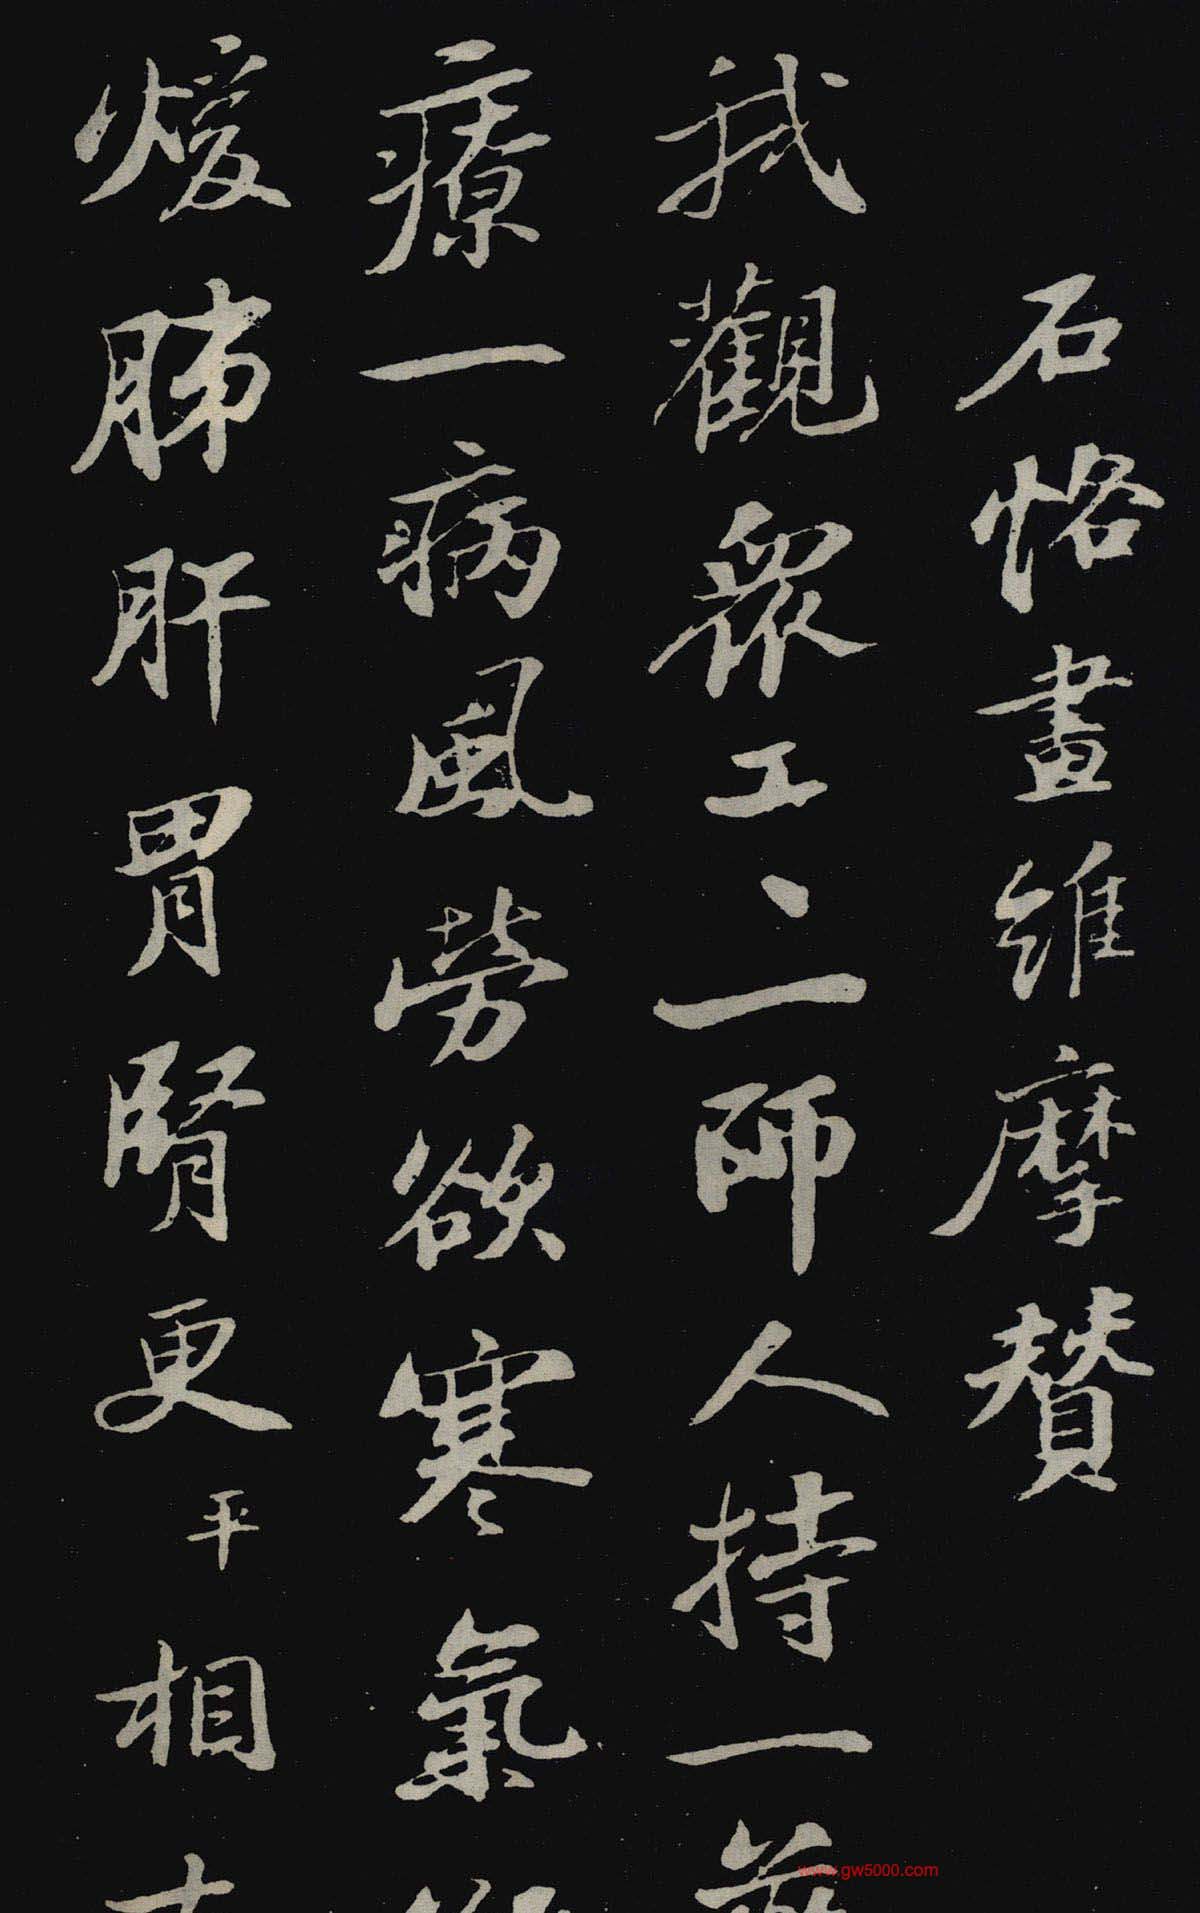 石恪畫維摩贊
我觀衆工丶一師人持一
療一病風勞欲寒氣
煖肺肝胃腎更平相
www.gw5000.com